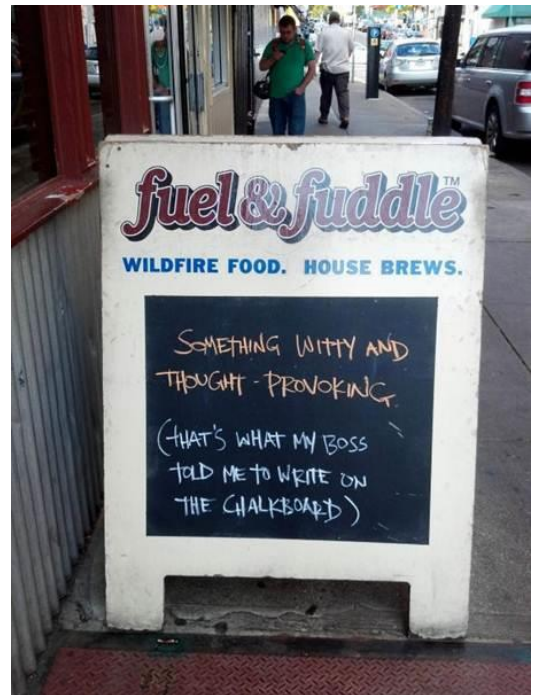 fuel & fuddle™
WILDFIRE FOOD. HOUSE BREWS.
SOMETHING WITTY AND
THOUGHT-PROVOKING.
(THAT'S WHAT MY BOSS
TOLD ME TO WRITE ON
THE CHALKBOARD)